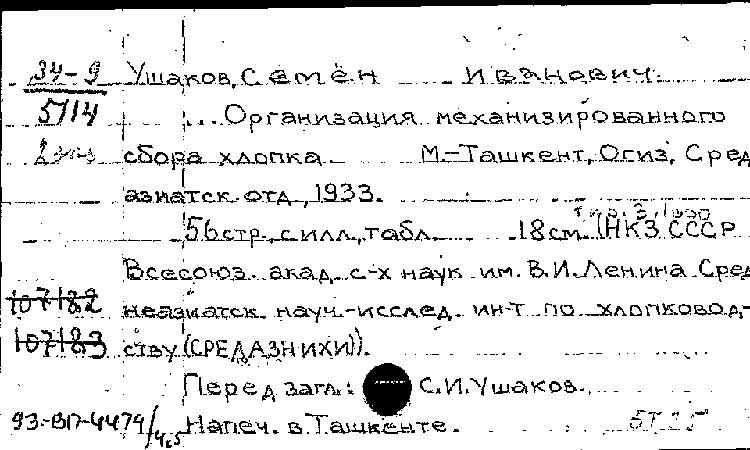 34-9 Ушаков, Семён Иванович.
5714 ...Организация механизированного
сбора хлопка М.-Ташкент, Огиз, Сред
азиатск. отд., 1933.
56 стр. с илл., табл. 18 см. (НКЗ СССР
Всесоюз. акад. с-х наук им. В.И.Ленина Сред
107182 неазиатск. науч.-исслед. ин-т по хлопковод-
107183 ству (СРЕДАЗНИХИ)).
Перед загл.: С.И.Ушаков.
93-ВП-4479/4,5 Напеч. в Ташкенте.